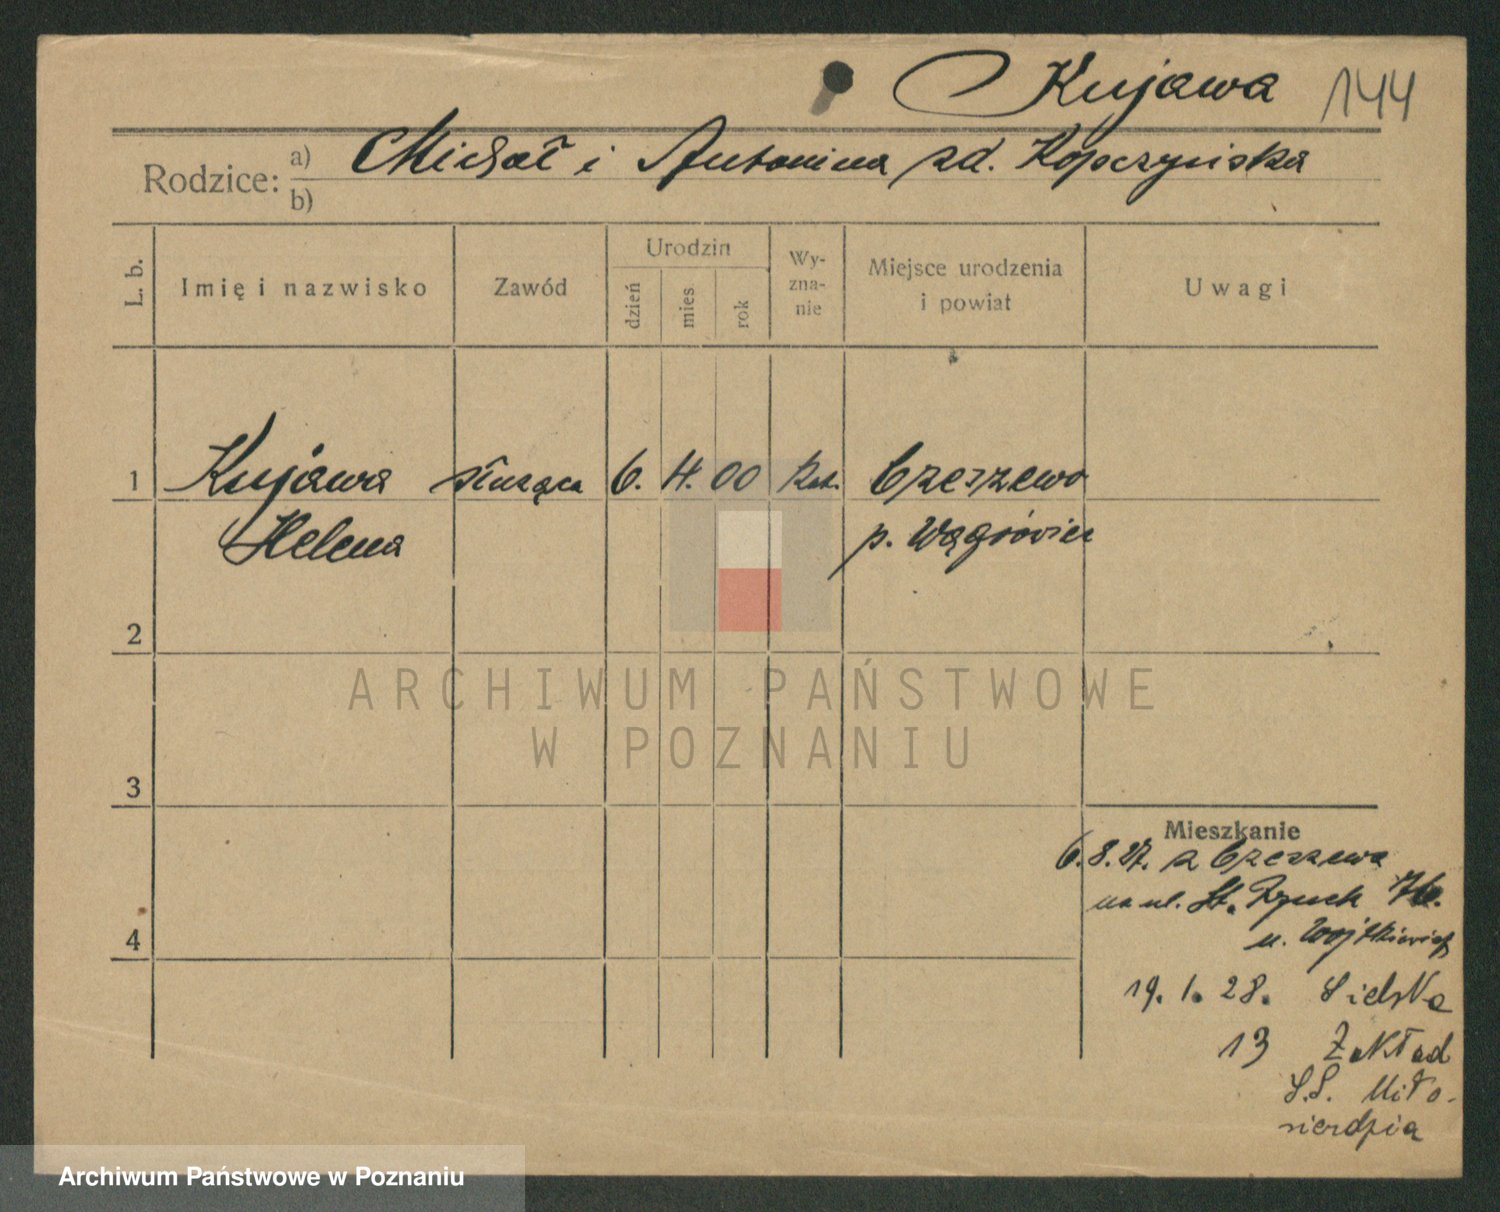 Kujawa 144
Rodzice: a) Michał i Antonina zd. Kopczyńska
b)
L. b.
Imię i nazwisko
Zawód
Urodzin
dzień
mies
rok
Wy-
zna-
nie
Miejsce urodzenia
i powiat
Uwagi
1 Kujawa służąca 6. 4. 00 kat. Czeszewo
Helena p. Wągrówiec
2
3
4
Mieszkanie
6.8.27. z Czeszewa
na ul. St. Rynek
u. Wojtkiewicz
19. 1. 28. Sielska
13 Zakład
S.S. Miło-
sierdzia
ARCHIWUM PAŃSTWOWE
W POZNANIU
Archiwum Państwowe w Poznaniu